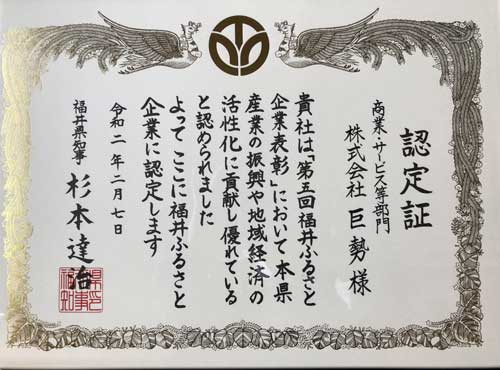 認定証
商業・サービス等部門
株式会社 巨勢 様
貴社は「第五回福井ふるさと
企業表彰」において本県
産業の振興や地域経済の
活性化に貢献し優れている
と認められました
よってここに福井ふるさと
企業に認定します
令和二年二月七日
福井県知事 杉本達治